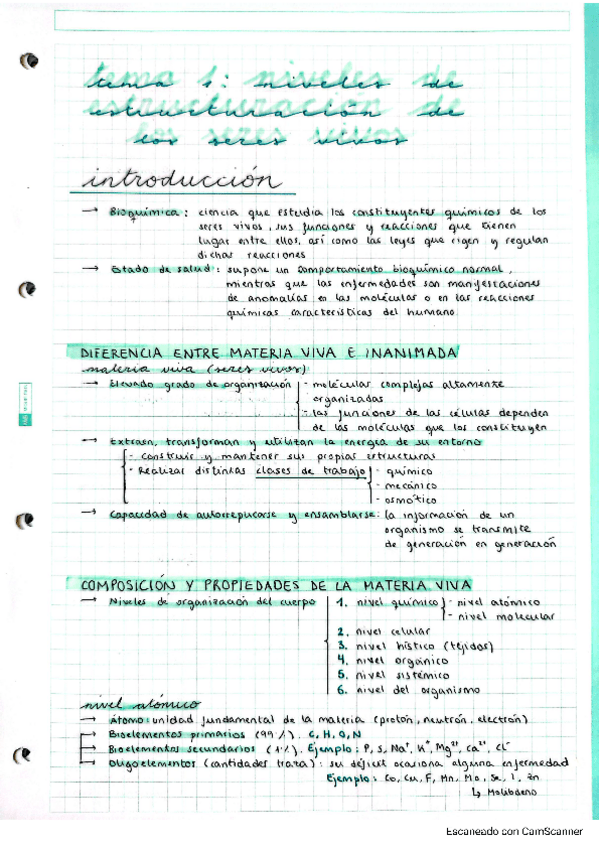 tema 1: niveles de
estructuración de
los seres vivos
introducción
→ Bioquímica: ciencia que estudia los constituyentes químicos de los
seres vivos, sus funciones y reacciones que tienen
lugar entre ellos, así como las leyes que rigen y regulan
dichas reacciones
→ Estado de salud: supone un comportamiento bioquímico normal,
mientras que las enfermedades son manifestaciones
de anomalías en las moléculas o en las reacciones
químicas características del humano.
DIFERENCIA ENTRE MATERIA VIVA E INANIMADA
materia viva (seres vivos)
→ Elevado grado de organización - moléculas complejas altamente
organizadas
- las funciones de las células dependen
de las moléculas que las constituyen
→ Extraen, transforman y utilizan la energía de su entorno
- construir y mantener sus propias estructuras
- Realizar distintas clases de trabajo - químico
- mecánico
- osmótico
→ Capacidad de autorreplicarse y ensamblarse: la información de un
organismo se transmite
de generación en generación
COMPOSICIÓN Y PROPIEDADES DE LA MATERIA VIVA
→ Niveles de organización del cuerpo 1. nivel químico - nivel atómico
- nivel molecular
2. nivel celular
3. nivel hístico (tejidos)
4. nivel orgánico
5. nivel sistémico
6. nivel del organismo
nivel atómico
→ Átomo: unidad fundamental de la materia (protón, neutrón, electrón)
→ Bioelementos primarios (99%). C, H, O, N
→ Bioelementos secundarios (1%). Ejemplo: P, S, Na⁺, K⁺, Mg²⁺, Ca²⁺, Cl⁻
→ Oligoelementos (cantidades traza): su déficit ocasiona alguna enfermedad
Ejemplo: Co, Cu, F, Mn, Mo, Se, I, Zn
↳ Molibdeno
Escaneado con CamScanner